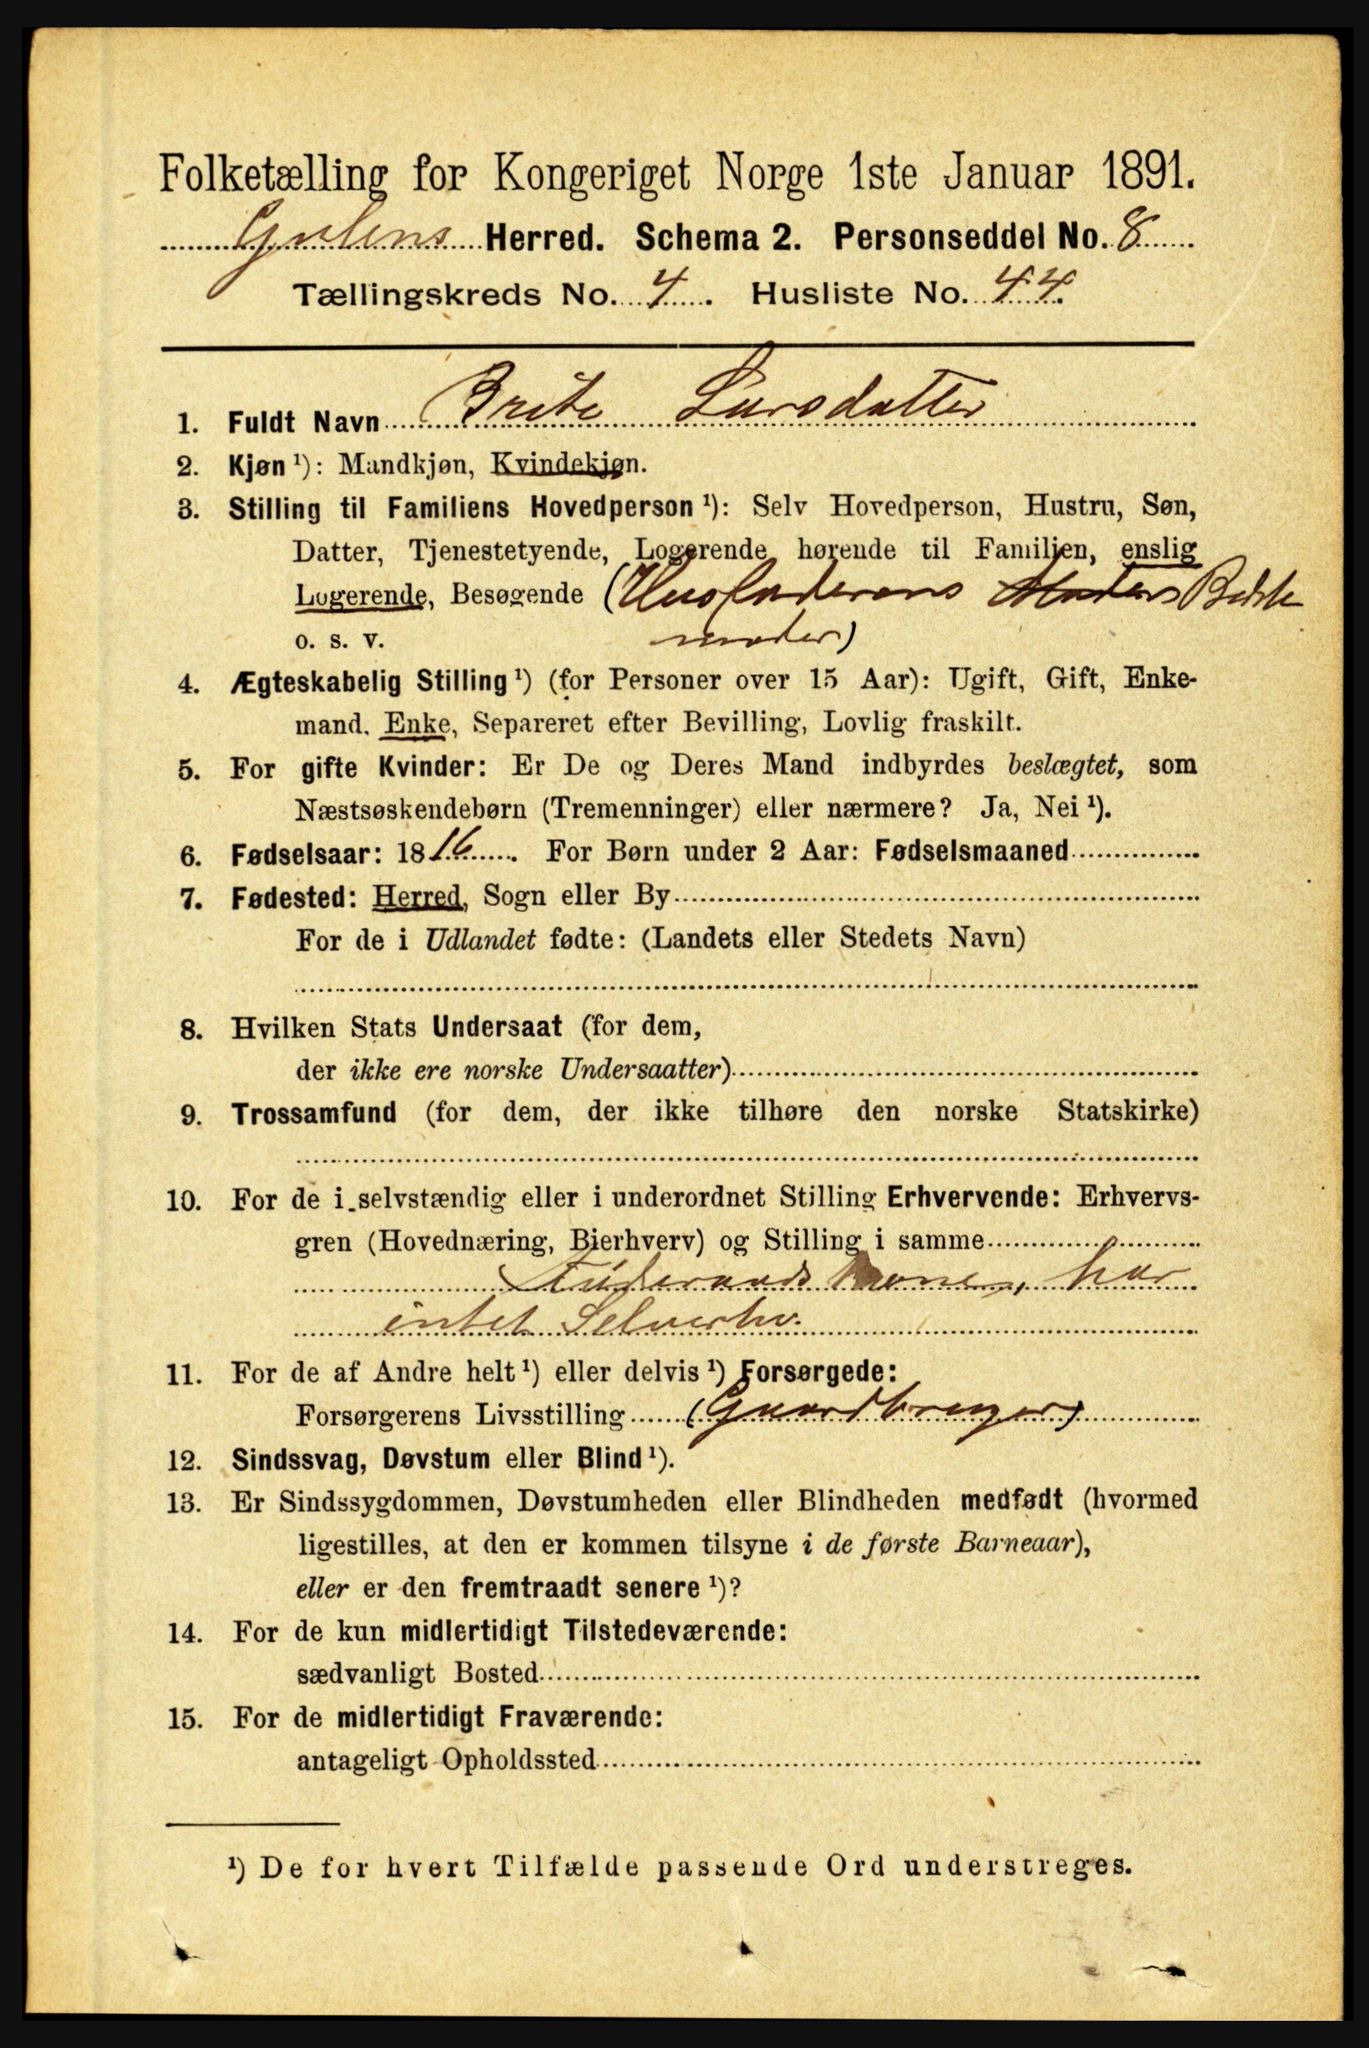 Folketælling for Kongeriget Norge 1ste Januar 1891.
Gulens Herred. Schema 2. Personseddel No. 8
Tællingskreds No. 4. Husliste No. 44.
1. Fuldt Navn Brite Larsdatter
2. Kjøn ¹): Mandkjøn, Kvindekjøn.
3. Stilling til Familiens Hovedperson ¹): Selv Hovedperson, Hustru, Søn,
Datter, Tjenestetyende, Logerende hørende til Familien, enslig
Logerende, Besøgende (Husfaderens Moders Bedste
o. s. v. moder)
4. Ægteskabelig Stilling ¹) (for Personer over 15 Aar): Ugift, Gift, Enke-
mand, Enke, Separeret efter Bevilling, Lovlig fraskilt.
5. For gifte Kvinder: Er De og Deres Mand indbyrdes beslægtet, som
Næstsøskendebørn (Tremenninger) eller nærmere? Ja, Nei ¹).
6. Fødselsaar: 1816. For Børn under 2 Aar: Fødselsmaaned
7. Fødested: Herred, Sogn eller By
For de i Udlandet fødte: (Landets eller Stedets Navn)
8. Hvilken Stats Undersaat (for dem,
der ikke ere norske Undersaatter)
9. Trossamfund (for dem, der ikke tilhøre den norske Statskirke)
10. For de i selvstændig eller i underordnet Stilling Erhvervende: Erhvervs-
gren (Hovednæring, Bierhverv) og Stilling i samme
Føderaads kone, har
intet Selverhv.
11. For de af Andre helt ¹) eller delvis ¹) Forsørgede:
Forsørgerens Livsstilling (Gaardbruger)
12. Sindssvag, Døvstum eller Blind ¹).
13. Er Sindssygdommen, Døvstumheden eller Blindheden medfødt (hvormed
ligestilles, at den er kommen tilsyne i de første Barneaar),
eller er den fremtraadt senere ¹)?
14. For de kun midlertidigt Tilstedeværende:
sædvanligt Bosted
15. For de midlertidigt Fraværende:
antageligt Opholdssted
¹) De for hvert Tilfælde passende Ord understreges.